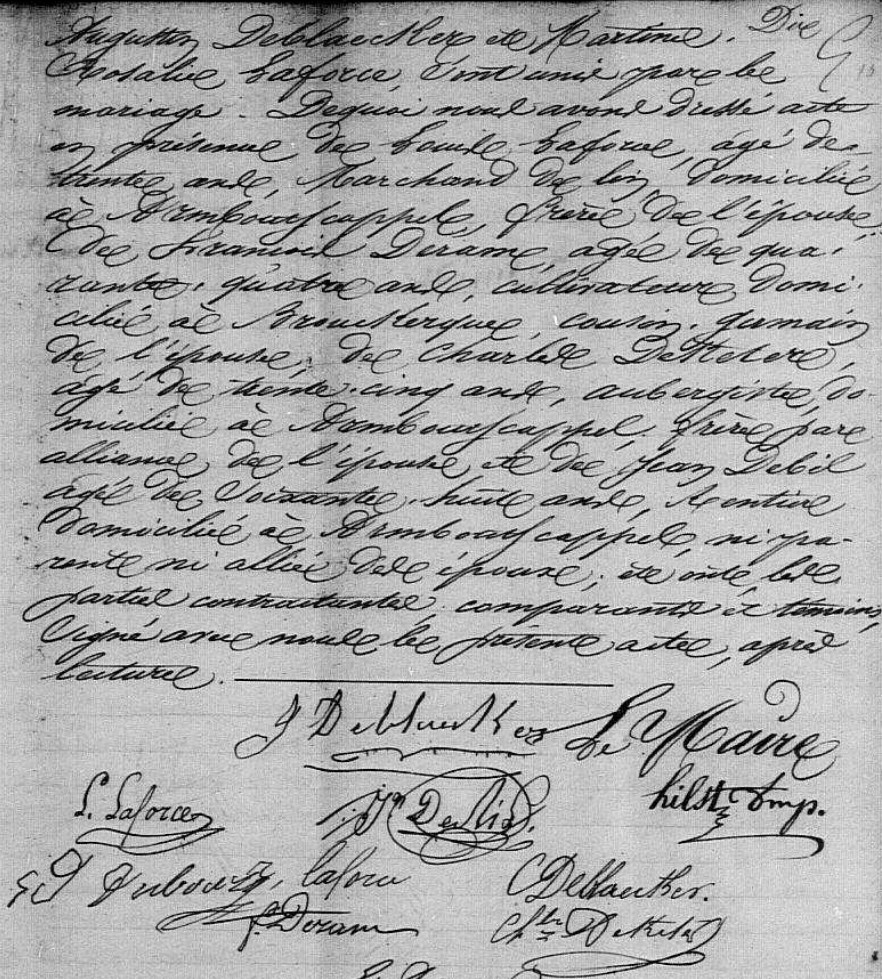 Augustin Deblaecker et Martine. Dit
Rosalie Laforce, sont unis par le
mariage. Dequoi nous avons dressé acte
en présence de Louis Laforce, âgé de
trente ans, Marchand de lin, domicilié
à Armboutscappel, frère de l'épouse,
de François Derame, âgé de qua-
rante-quatre ans, cultivateur, domi-
cilié à Brouckerque, cousin-germain
de l'épouse, de Charles DeKetere,
âgé de trente-cinq ans, aubergiste, do-
micilié à Armboutscappel, frère par
alliance de l'épouse et de Jean Debil
âgé de soixante-huit ans, Rentier
domicilié à Armboutscappel, ni pa-
rent ni allié des époux; et ont, les
parties contractantes, comparants et témoins,
Signé avec nous le présent acte, après
lecture.
J Deblaecker Le Maire
L. Laforce Jn
laforce CDeblaecker.
f. Derame Chles DeKeter